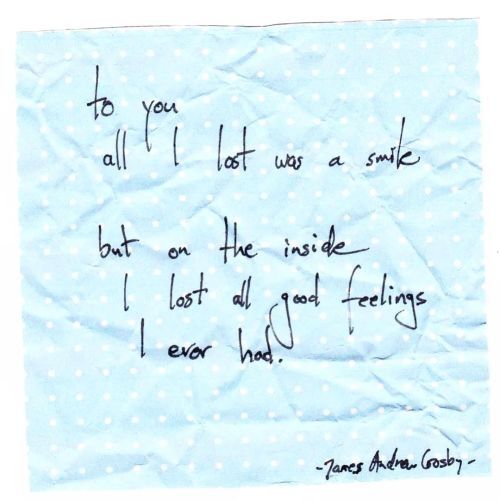 to you
all I lost was a smile
but on the inside
I lost all good feelings
I ever had.
-James Andrew Crosby-